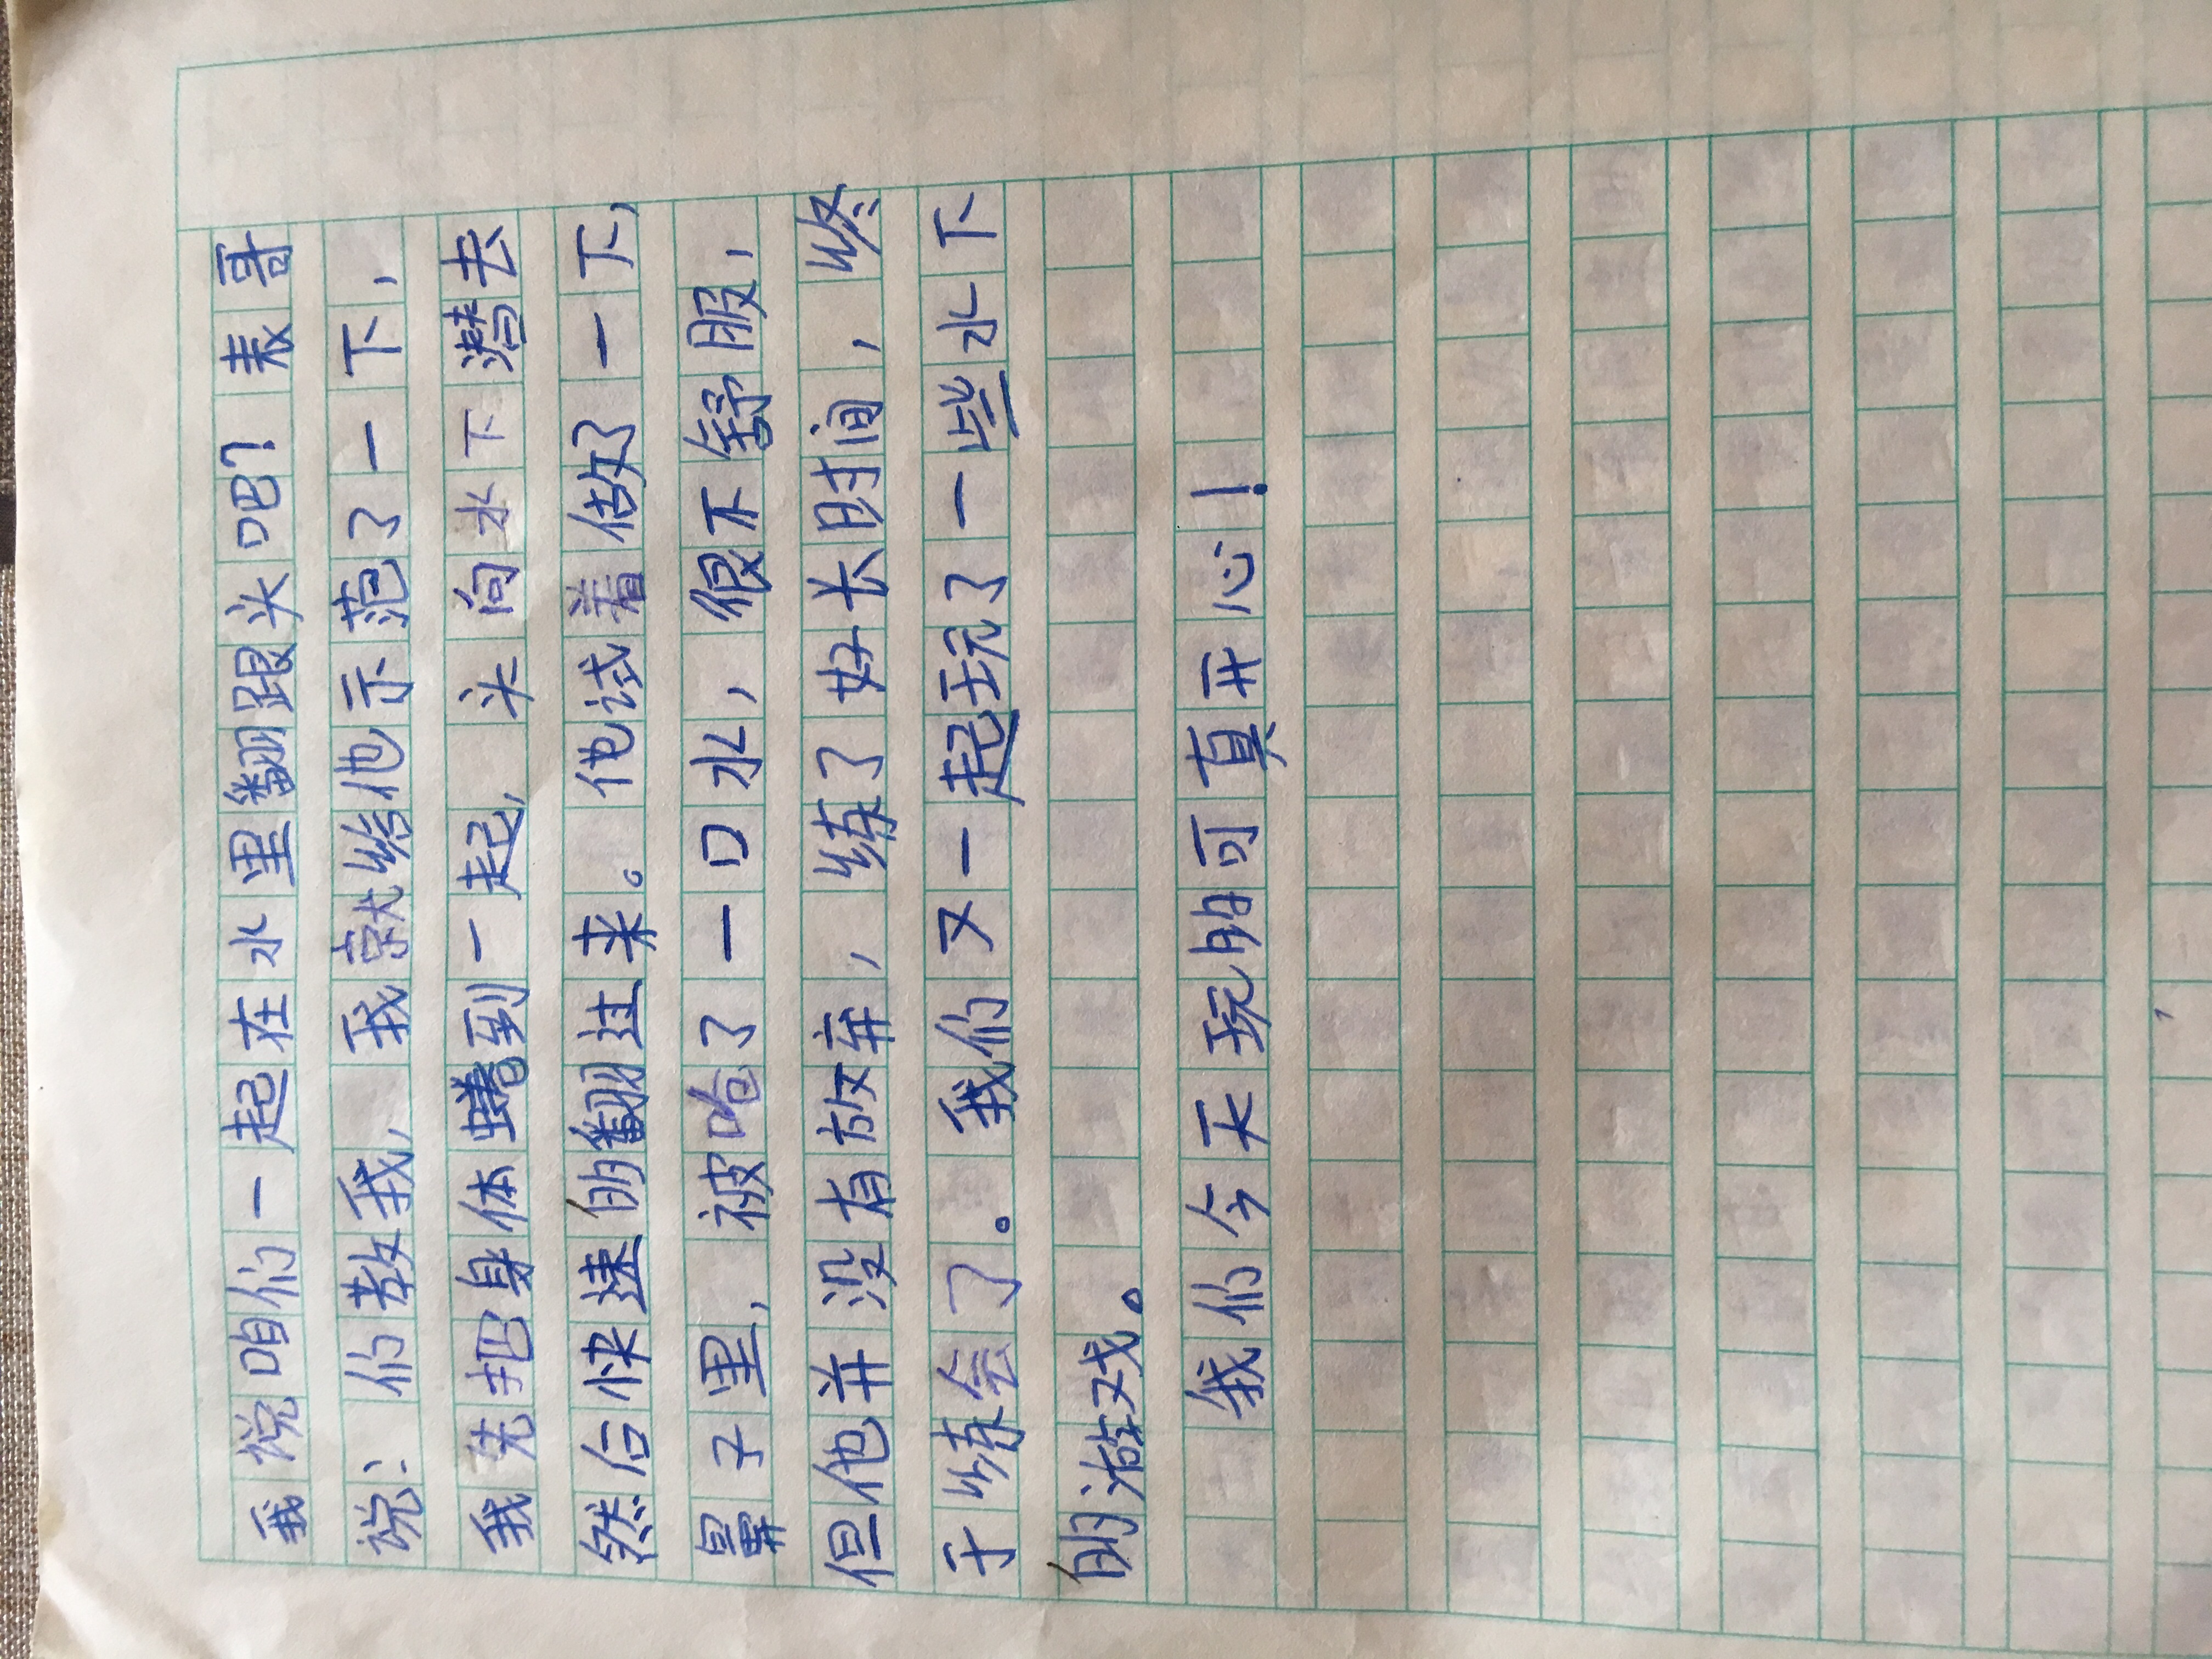 我说咱们一起在水里翻跟头吧？表哥
说：们教我，我就给他示范了一下，
我先把身体蜷到一起，头向水下潜去
然后快速的翻过来。他试着做了一下，
鼻子里，被呛了一口水，很不舒服，
但他并没有放弃，练了好长时间，终
于练会了。我们又一起玩了一些水下
的游戏。
我们今天玩的可真开心！